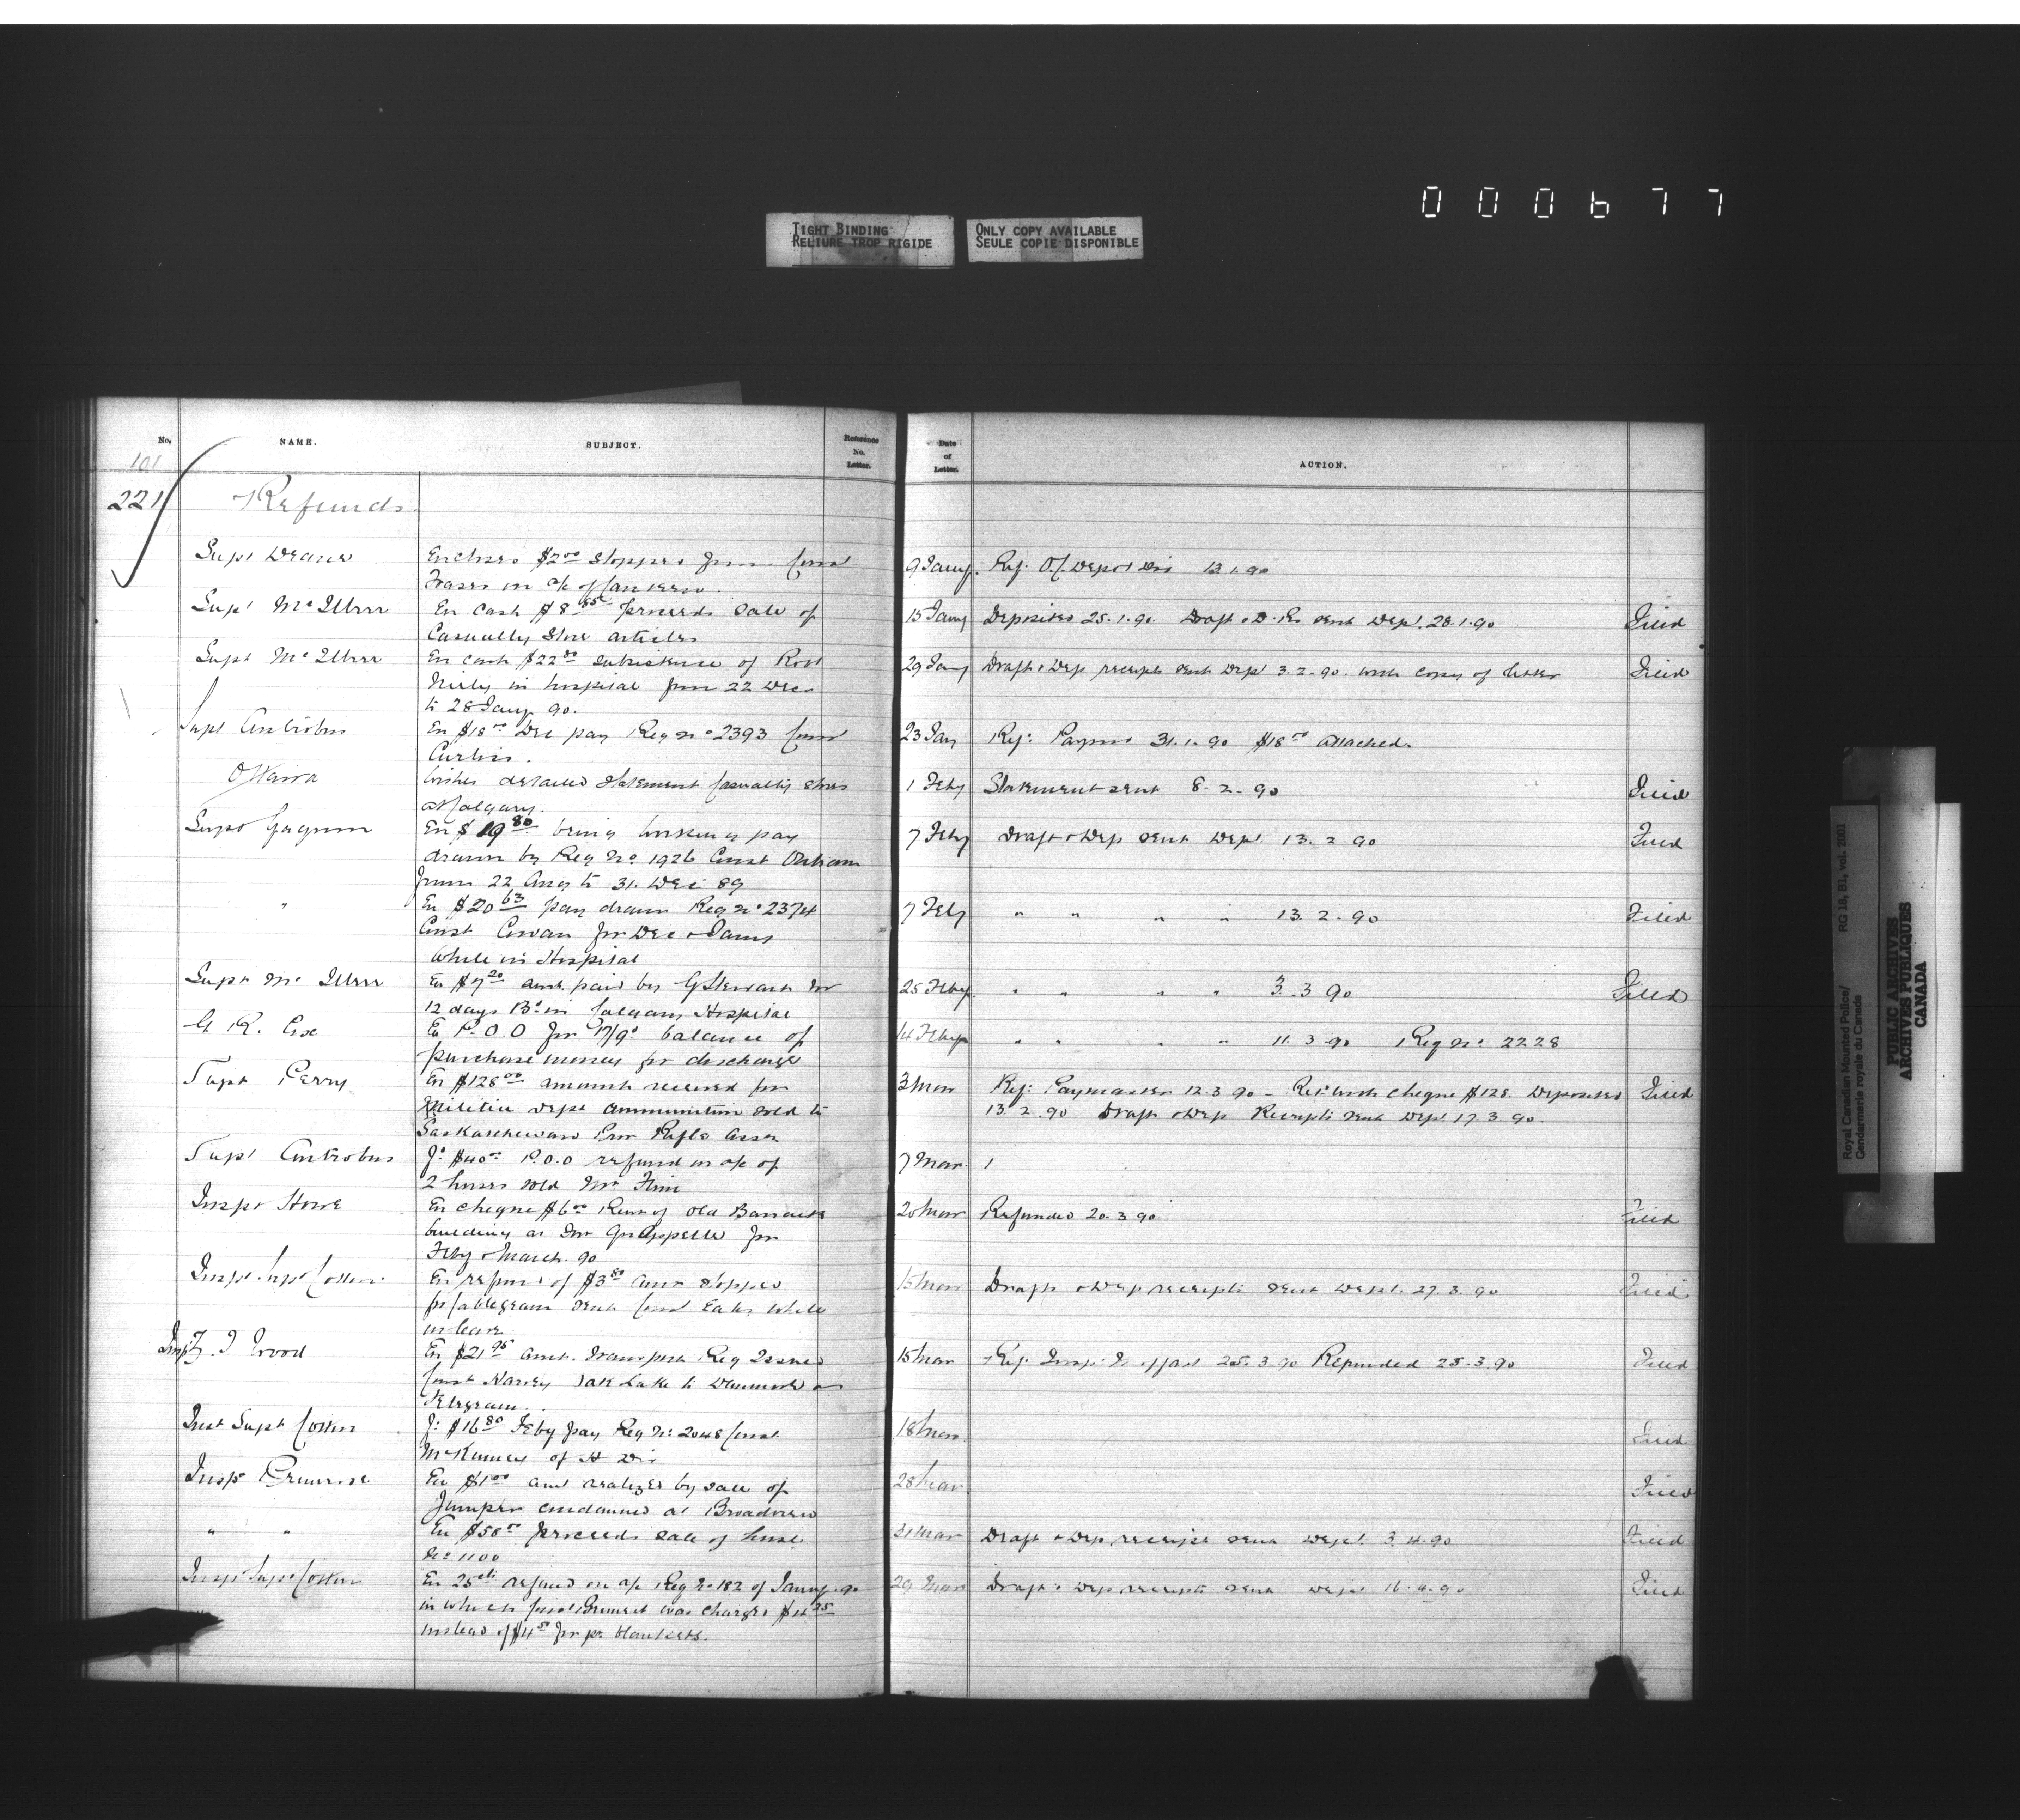 000677
TIGHT BINDING
RELIURE TROP RIGIDE
ONLY COPY AVAILABLE
SEULE COPIE DISPONIBLE
No. NAME. SUBJECT. Reference No. Letter. Date of Letter. ACTION.
101
221 Refunds
Supt Deane Encloses $2.00 stopped from Const 9 Jany. Ref. O.C. Depot Div 13.1.90
Fraser on a/c of canteen.
Supt McIllree En cash $8.85 proceeds sale of 15 Jany Deposited 25.1.90 Draft & D. Rs sent Dept. 28.1.90 Filed
Casualty Store articles
Supt McIllree En cash $22.80 subsistence of Robt 29 Jany Draft & Dep receipts sent Dept 3.2.90. with copy of letter Filed
in hospital from 22 Dec
to 28 Jany 90.
Supt Antrobus En $18.00 Dec pay Reg No 2393 Const 23 Jan Ref: Paymr 31.1.90 $18.00 attached.
Curtis.
Ottawa Wishes detailed statement Casualty stores 1 Feby Statement sent 8.2.90 Filed
at Calgary.
Supt Gagnon En $19.80 being working pay 7 Feby Draft & Dep sent Dept. 13.2.90 Filed
drawn by Reg No. 1926 Const
from 22 Aug to 31. Dec 89
" En $20.63 pay drawn Reg No 2374 7 Feby " " " " 13.2.90 Filed
Const Cowan for Dec & Jany
while in Hospital
Supt McIllree En $7.20 amt. paid by G Stewart for 25 Feby " " " " 3.3.90 Filed
12 days Bd in Calgary Hospital
G R. Cox En P.O.O for 17/9d balance of 14 Feby " " " " 11.3.90 Reg No. 2228
purchase money for discharge
Supt Perry En $128.00 amount received for 3 Mar Ref: Paymaster 12.3.90 - Retd with cheque $128. Deposited Filed
Militia Dept ammunition sold to 13.2.90 Draft & Dep Receipts sent Dept 17.3.90.
Saskatchewan Prov Rifle Assn
Supt Antrobus $40.00 P.O.O refund on a/c of 7 Mar. 1
2 horses sold Mr
Inspr Howe En cheque $6.00 Rent of old Barrack 20 Mar Refunded 20.3.90 Filed
building at Fort Qu'Appelle for
Feby & March. 90
Supt Cotton. En refund of $3.80 amt stopped 15 Mar Draft & Dep receipts sent Dept. 27.3.90 Filed
for cablegram sent Const while
on leave
Insp Z. T Wood En $21.95 amt. transport Req Issued 15 Mar Ref. Insp: Moffatt 25.3.90 Refunded 25.3.90 Filed
Const Harvey Oak Lake to
telegram.
Supt Cotten $16.80 Feby pay Reg No: 2048 Const. 18 Mar. Filed
of H Div
Insp Primrose En $1.00 amt realized by sale of 28 Mar Filed
Jumper condemned at Broadview
" " En $58.00 proceeds sale of horse 31 Mar Draft & Dep receipt sent Dept. 3.4.90 Filed
No 1100
Supt Cotten En 25cts refund on a/c Reg No 182 of Jany. 90 29 Mar Draft & Dep receipts sent Dept 16.4.90 Filed
in which Const was charged $4.25
instead of $4.50 for pr blankets.
Royal Canadian Mounted Police/
Gendarmerie royale du Canada
RG 18, B1, vol. 2001
PUBLIC ARCHIVES
ARCHIVES PUBLIQUES
CANADA